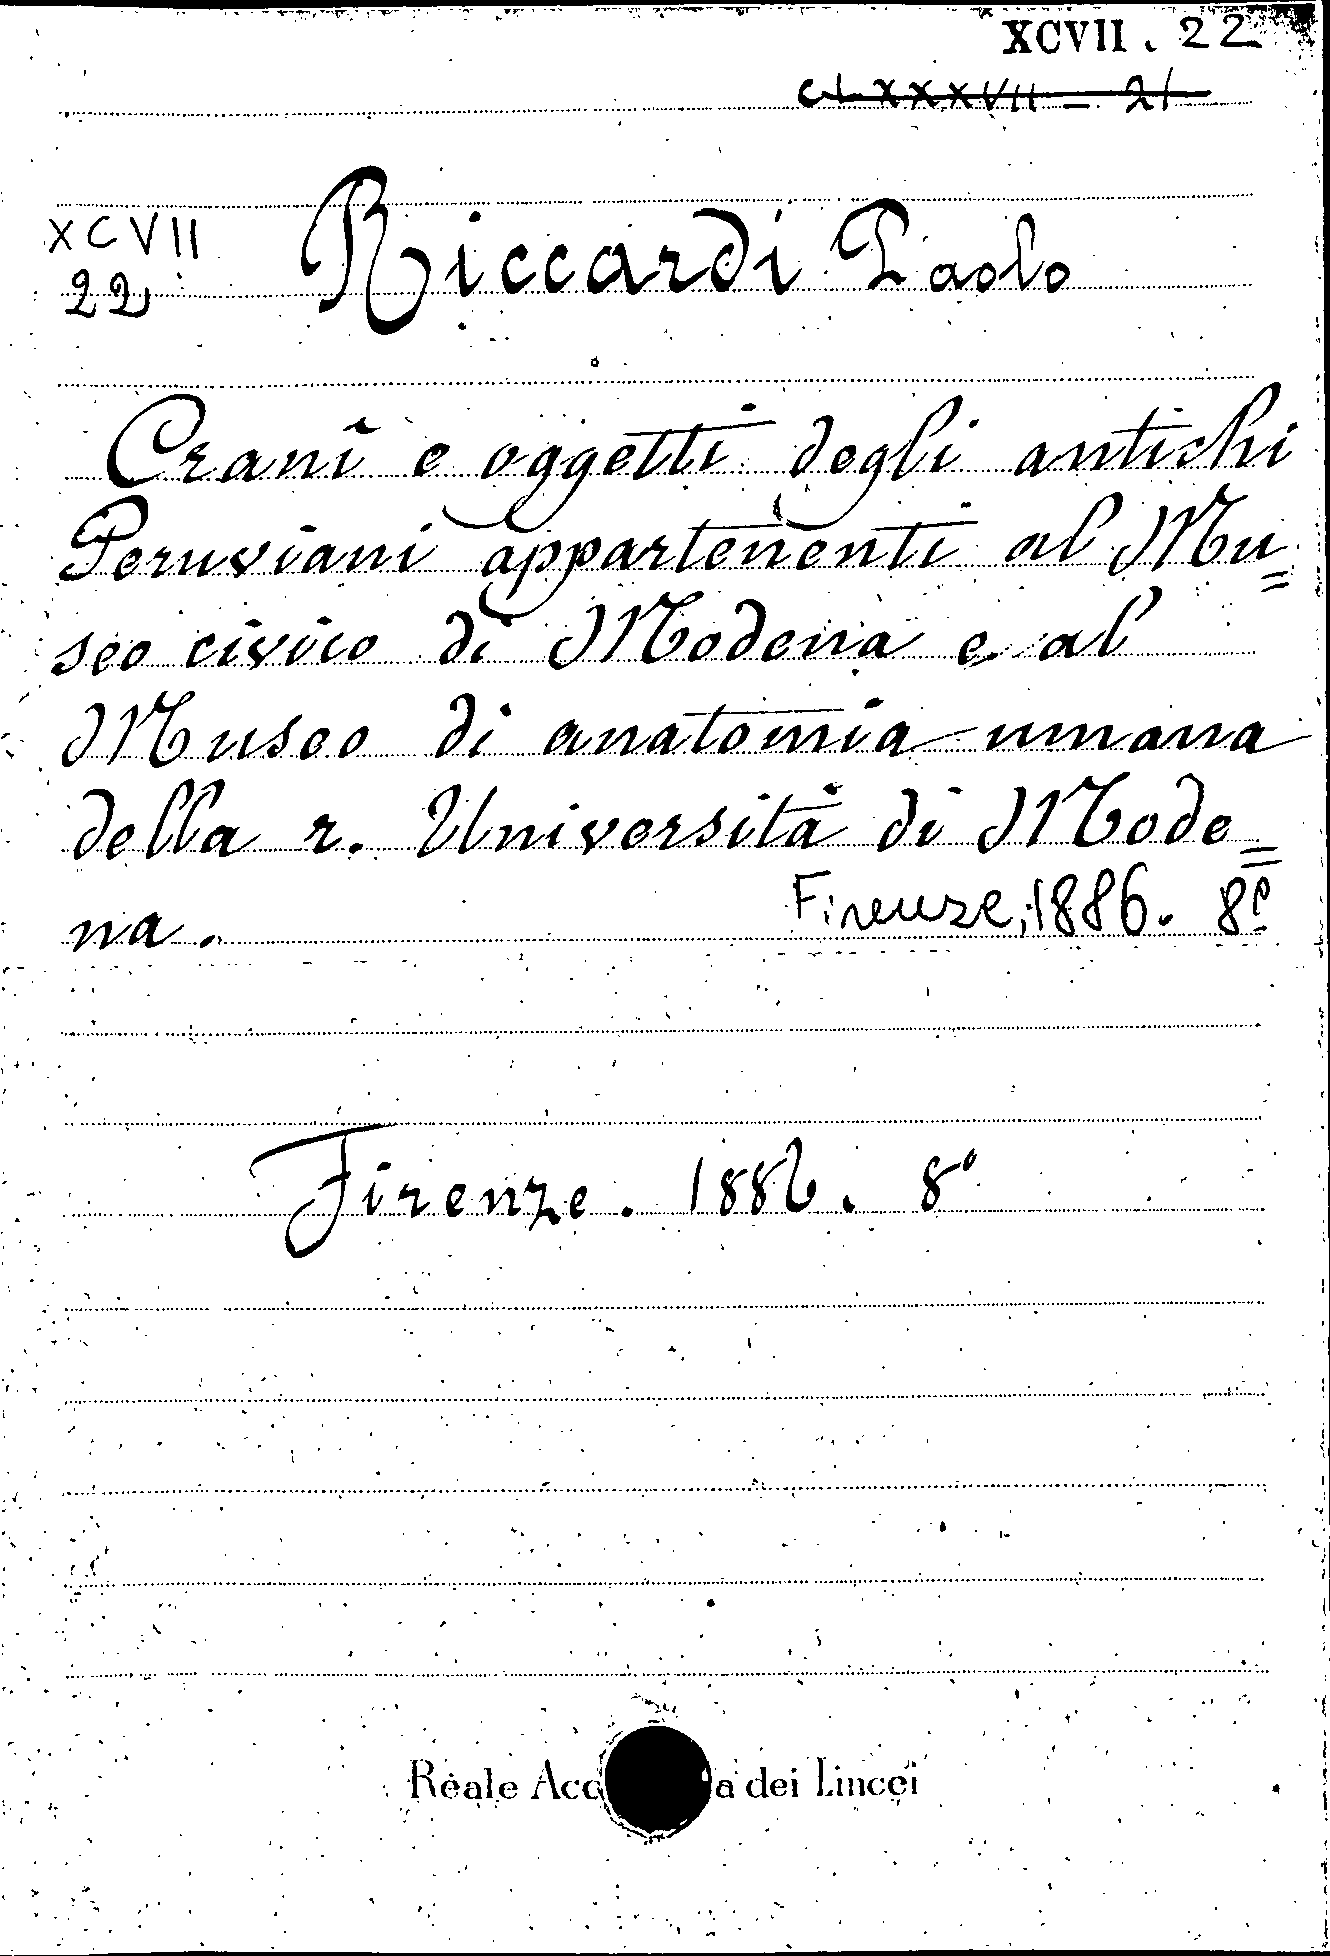 XCVII. 22
CLXXXVII - 21
XCVII
22
Riccardi Paolo
Cranî e oggetti degli antichi
Peruviani appartenenti al Mu=
seo civico di Modena e al
Museo di anatomia umana
della r. Università di Mode=
na.
Firenze, 1886. 8º
Firenze. 1886. 8º
Reale Acc a dei Lincei